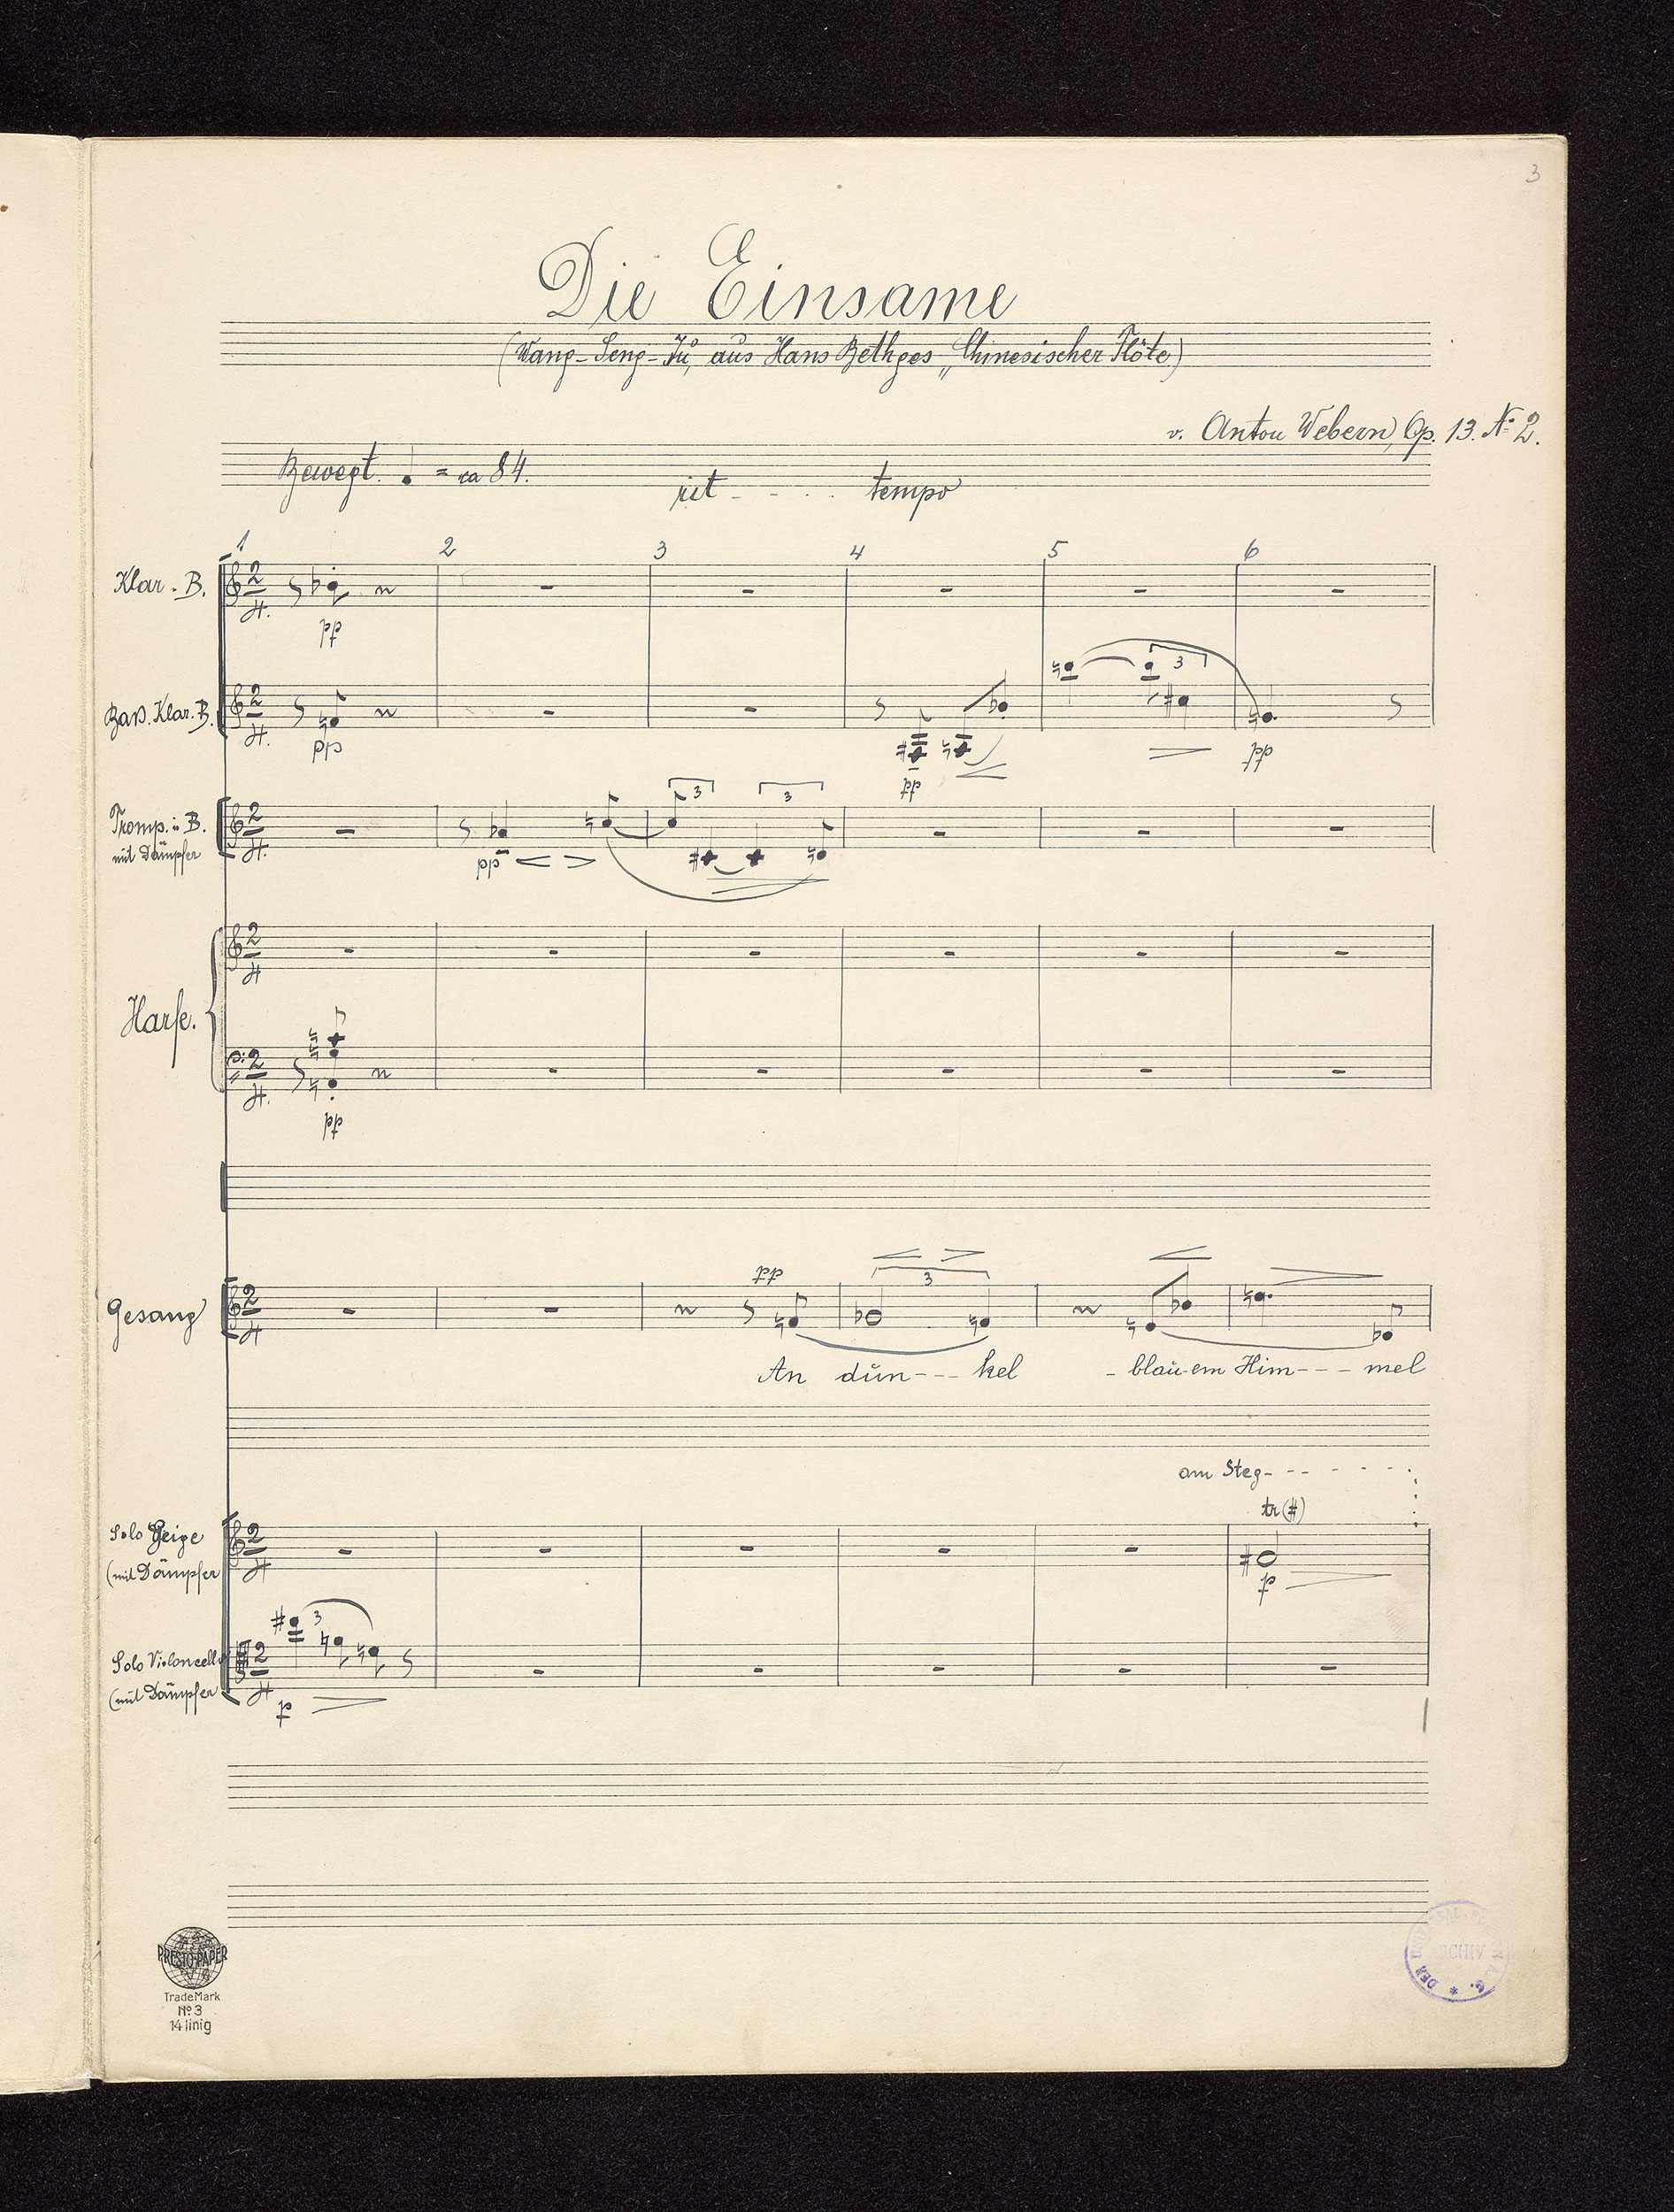 3
Die Einsame
(Wang-Seng-Yu, aus Hans Bethges „Chinesischer Flöte)
v. Anton Webern, Op. 13. No 2.
Bewegt. ♩ = ca 84.
rit - - . . tempo
1 2 3 4 5 6
Klar. B.
2 4.
pp
Bass. Klar. B.
2 4.
pp pp 3 pp
Tromp. in B.
mit Dämpfer
2 4.
pp 3 3
Harfe.
2 4
2 4.
pp
Gesang
2 4
pp 3
An dun - - - kel - blau-em Him - - - mel
am Steg - - - - - -
tr(#)
Solo Geige
(mit Dämpfer
2 4
p
Solo Violoncell
(mit Dämpfer
2 4
3
p
PRESTO-PAPER
TradeMark
No 3
14 linig
ARCHIV
DER